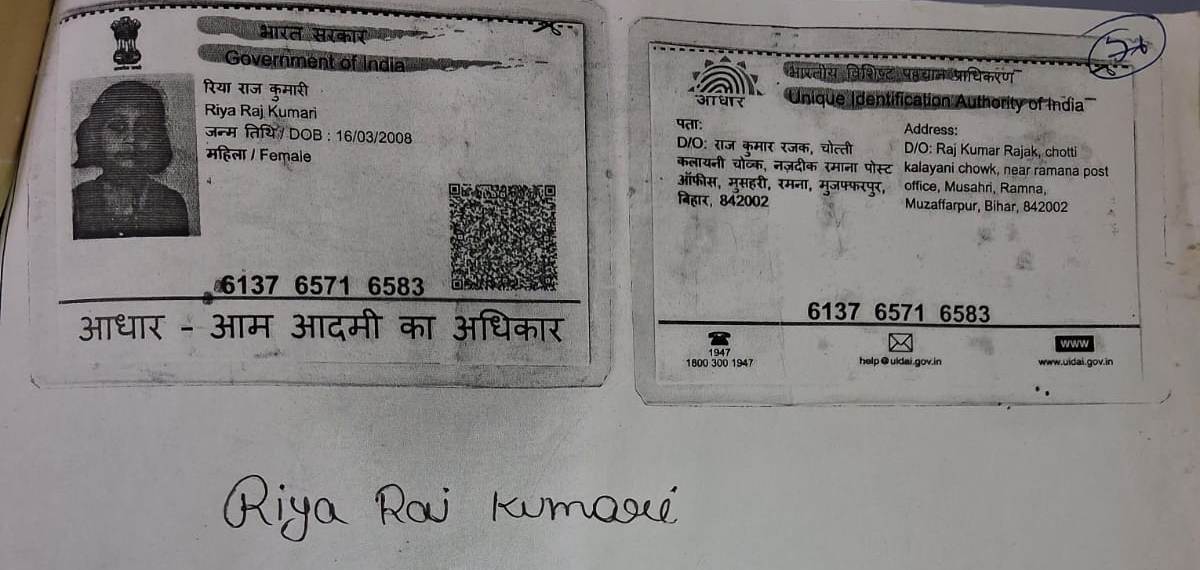 भारत सरकार
Government of India
रिया राज कुमारी
Riya Raj Kumari
जन्म तिथि / DOB : 16/03/2008
महिला / Female
6137 6571 6583
आधार - आम आदमी का अधिकार
भारतीय विशिष्ट पहचान प्राधिकरण
Unique Identification Authority of India
आधार
पता:
D/O: राज कुमार रजक, चोत्ती
कलायनी चोव्क, नज़दीक रमाना पोस्ट
ऑफीस, मुसहरी, रमना, मुजफ्फरपुर,
बिहार, 842002
Address:
D/O: Raj Kumar Rajak, chotti
kalayani chowk, near ramana post
office, Musahri, Ramna,
Muzaffarpur, Bihar, 842002
6137 6571 6583
1947
1800 300 1947
help@uidai.gov.in
www
www.uidai.gov.in
Riya Raj Kumari